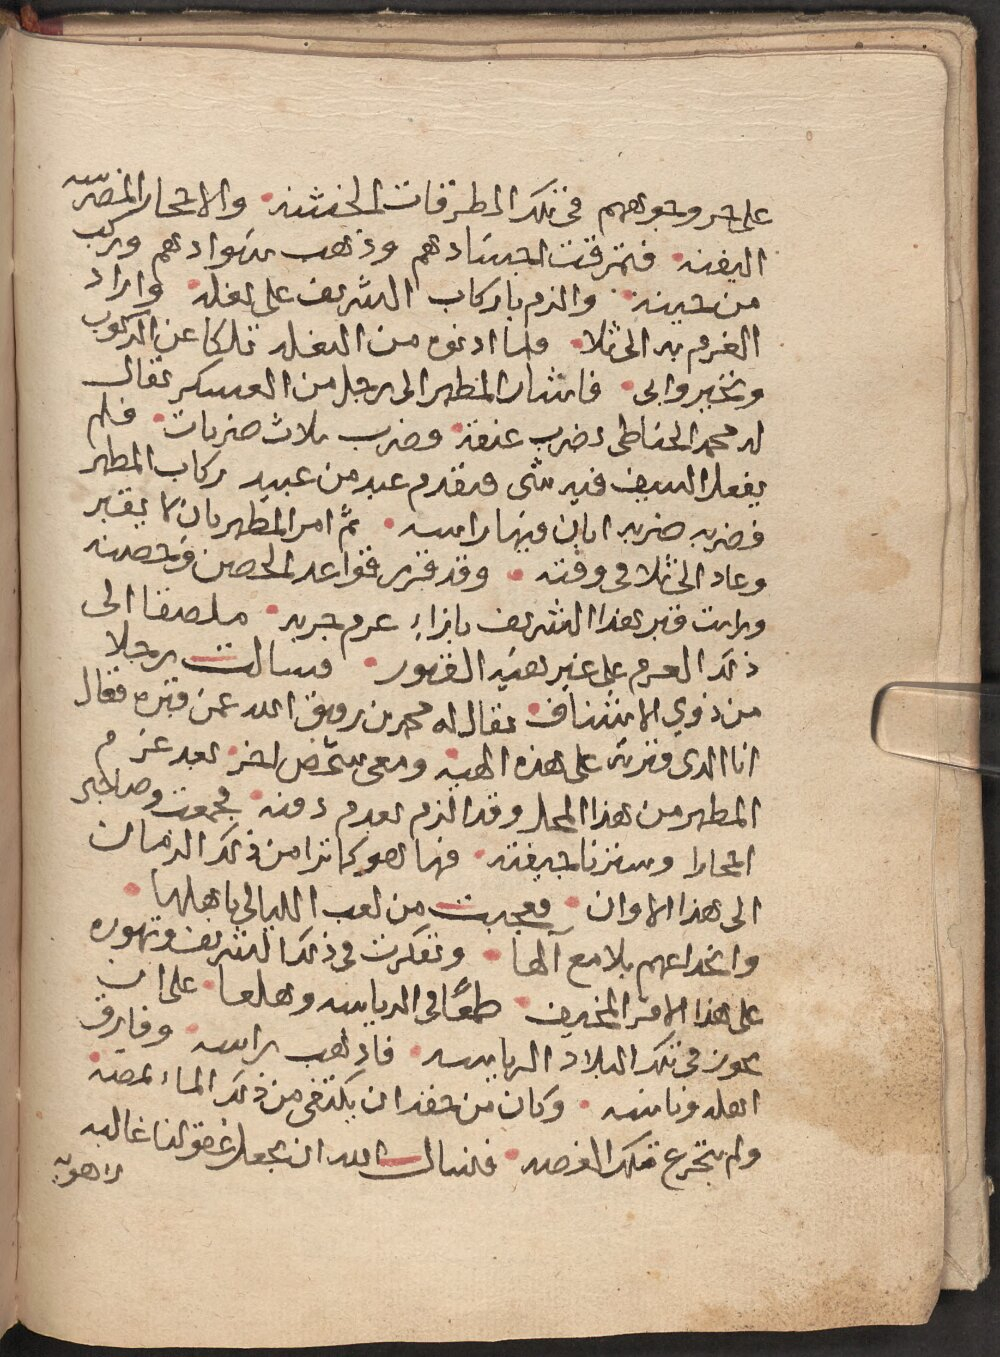 على حر وجوههم في تلك الطرقات الخشنه والاحجار المضرسه
اليفنه فتمزقت اجسادهم وذهب سوادهم وركب
من حينه والزم باركاب الشريف على بغله واراد
العزم به الى ثلا فلما ادنوه من البغله تلكا عن الركوب
وتحير وابى فاشار المطهر الى رجل من العسكر يقال
له محمد الحناطى اضرب عنقه فضرب ثلاث ضربات فلم
يفعل السيف فيه شى فتقدم عبد من عبيد ركاب المطهر
فضربه ضربه ابان فيها راسه ثم امر المطهر بان لا يقبر
وعاد الى ثلا في وقته وقد قرر قواعد الحصن وحصنه
ورايت قبر هذا الشريف بازاء عرم جربه ملصقا الى
ذلك العرم على غير هيئه القبور فسالت رجلا
من ذوي الاشناف يقال له محمد بن رزق الله عمن قبره فقال
انا الذى قبرته على هذه الهيه ومعى شخص اخر بعد عزم
المطهر من هذا المحل وقد الزم بعدم دفنه فجمعت وصاحبي
احجارا وسترنا جيفته فها هو كما ترا من ذلك الزمان
الى هذا الاوان فعجبت من لعب الليالي باهلها
وانخداعهم بلامع آلها وتفكرت في ذلك الشريف وتهوره
على هذا الامر المخيف طمعًا في الرياسه وهلعا على ان
يحوز في تلك البلاد الرياسه فاذهب براسه وفارق
اهله وناسه وكان من حقه ان يكتفى من ذلك الماء بمصه
ولم يتجرع تلك الغصه فنسال الله ان يجعل عقولنا غالبه
لاهويه